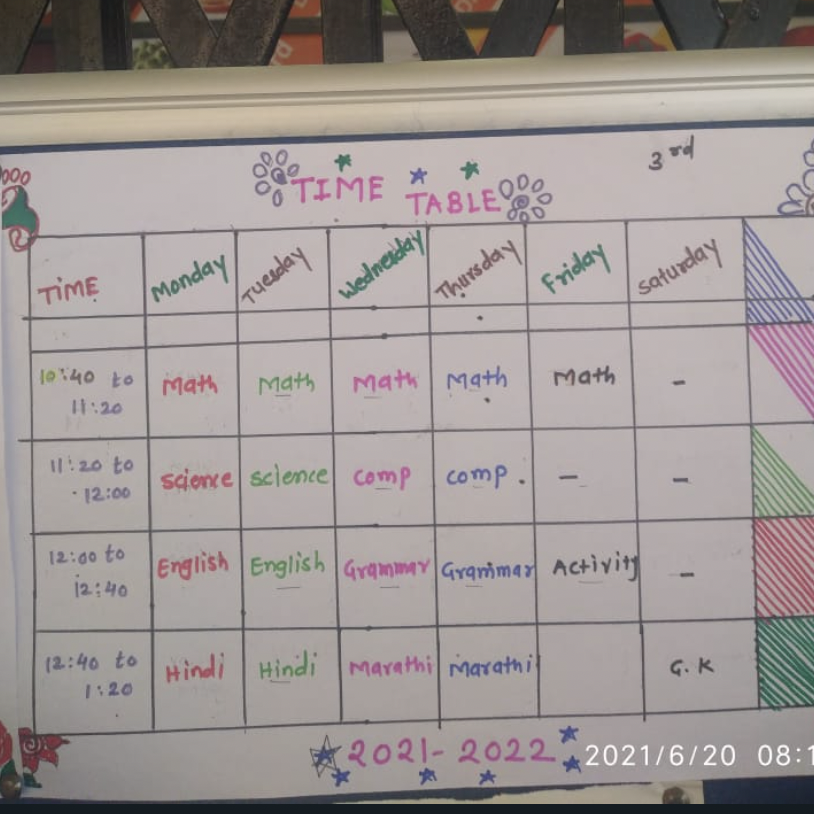 3rd
TIME TABLE
TIME Monday Tuesday Wednesday Thursday Friday Saturday
10:40 to 11:20 Math Math Math Math Math -
11:20 to 12:00 Science Science Comp Comp. - -
12:00 to 12:40 English English Grammar Grammar Activity -
12:40 to 1:20 Hindi Hindi Marathi Marathi G.K
2021-2022
2021/6/20 08:1